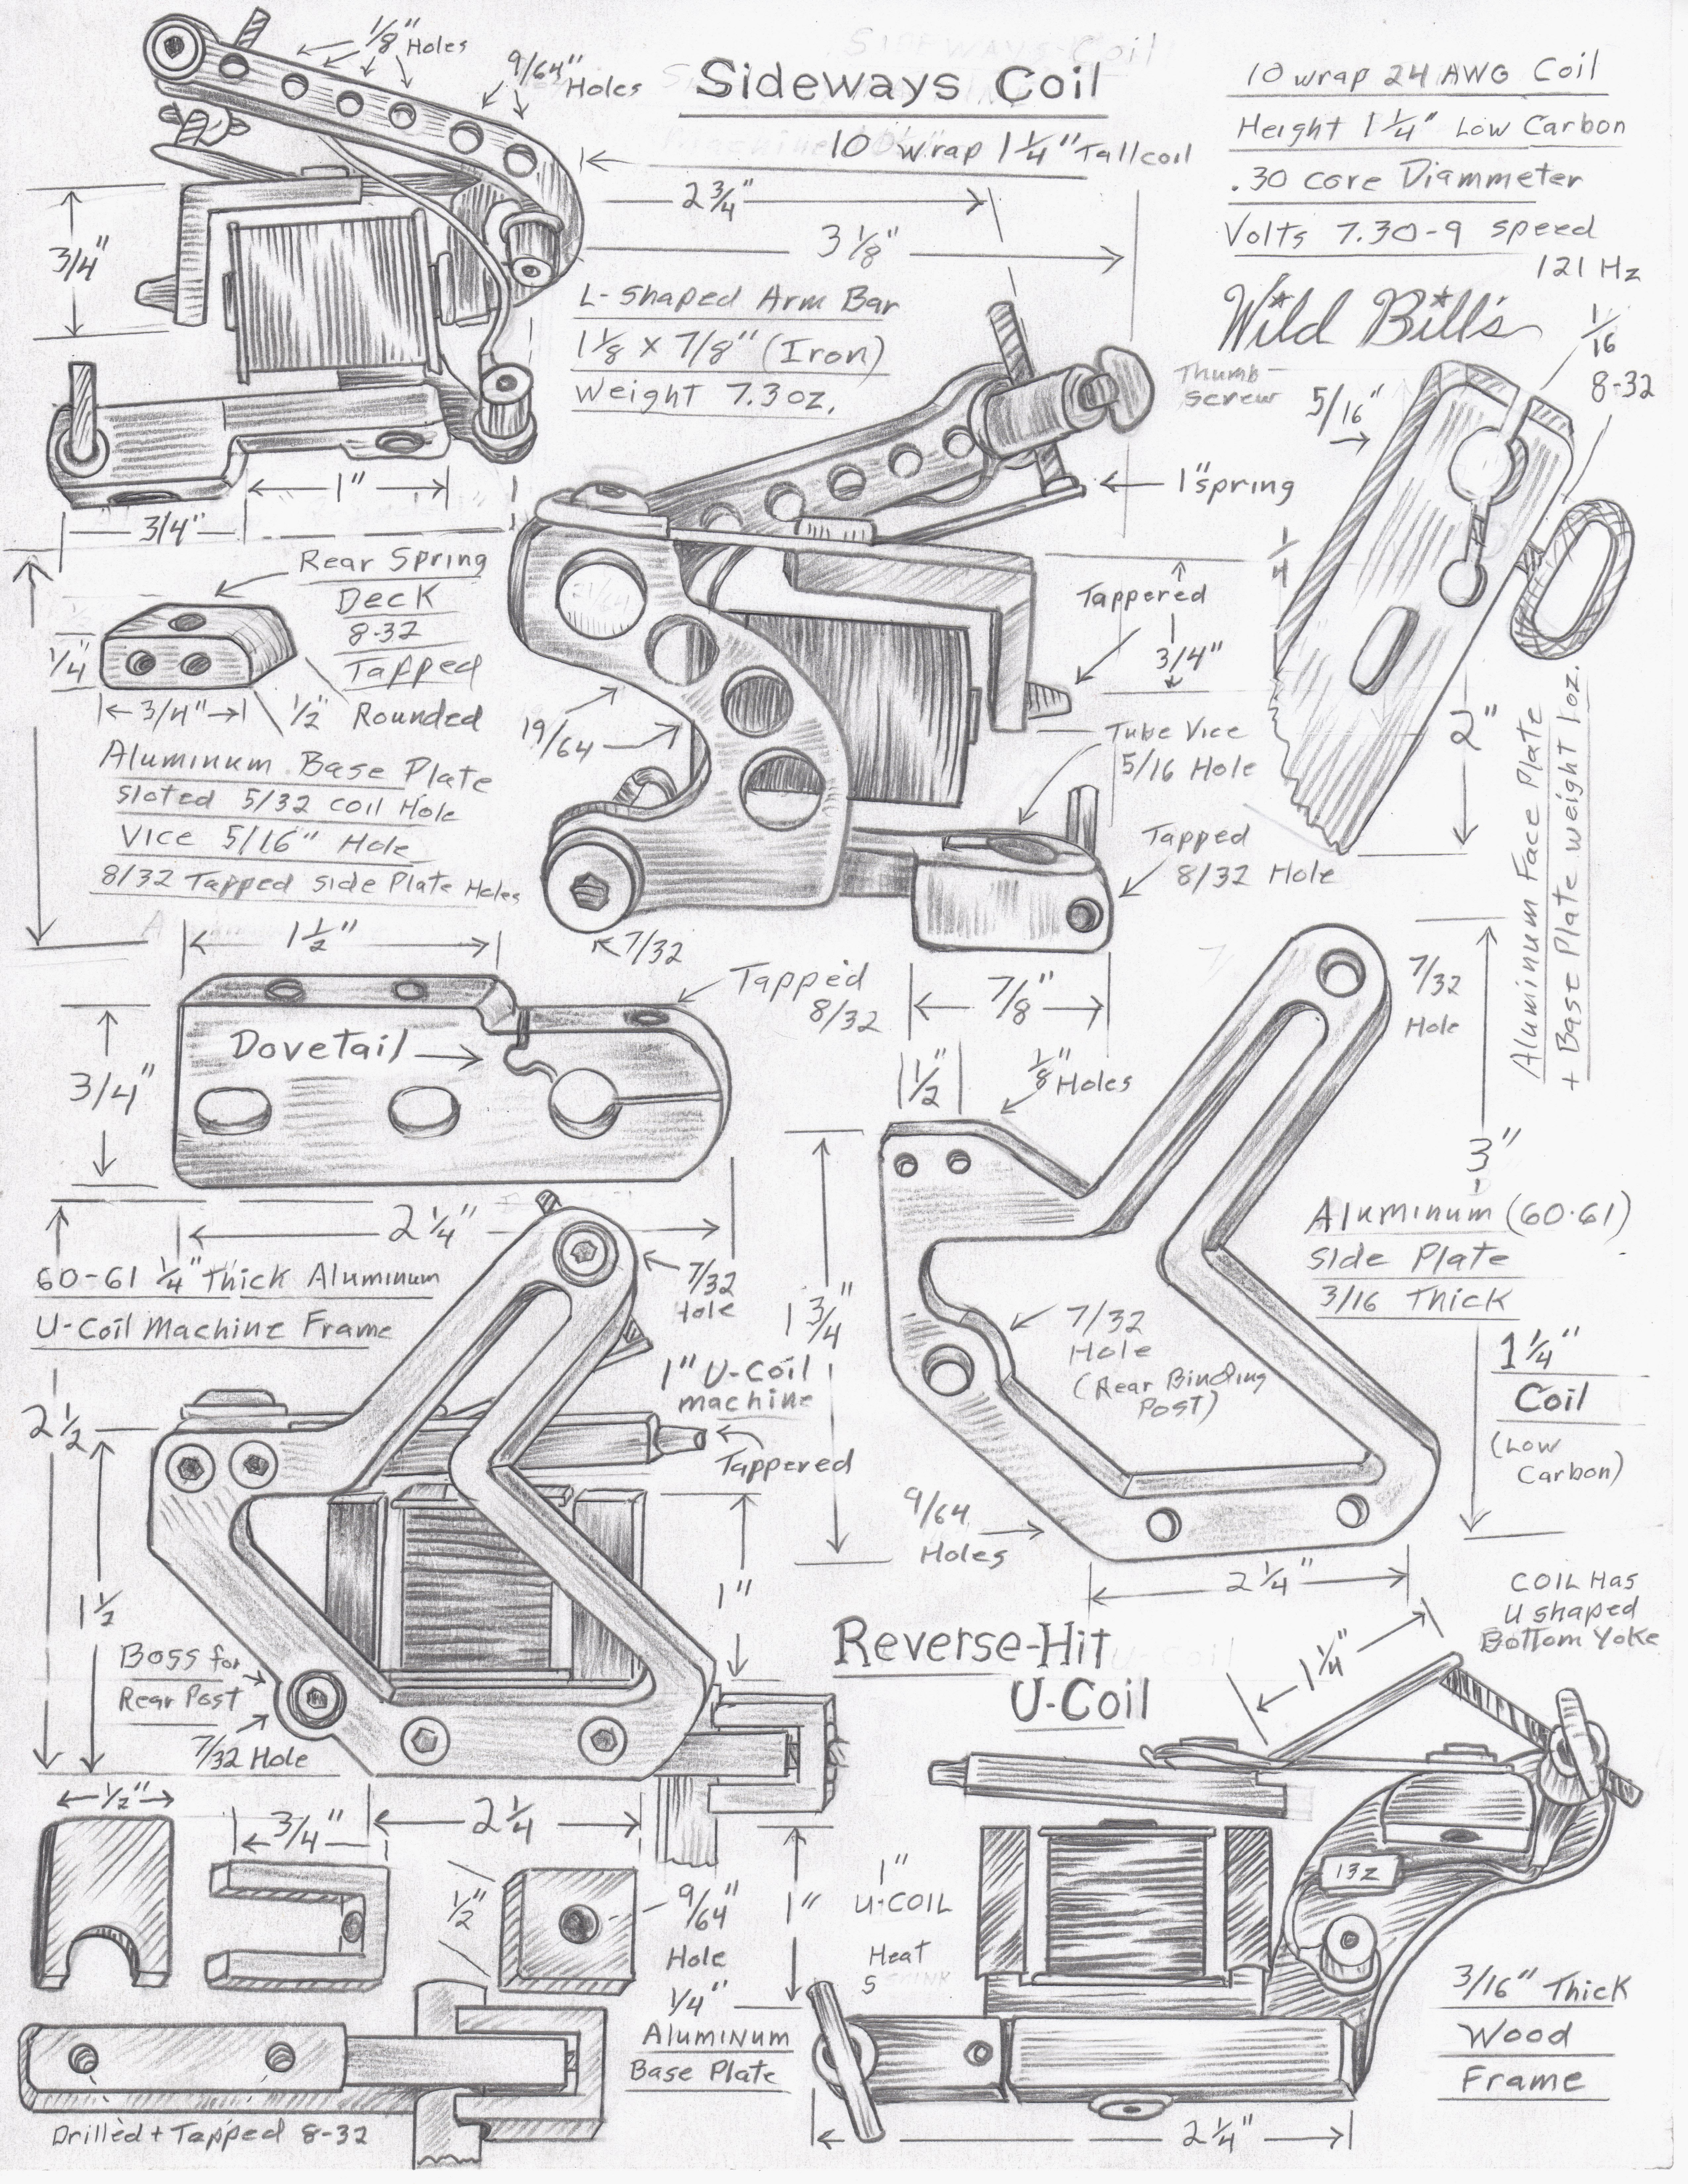 1/8" Holes
9/64" Holes
Sideways Coil
10 wrap 1 1/4" Tall coil
2 3/4"
3 1/8"
10 wrap 24 AWG Coil
Height 1 1/4" Low Carbon
.30 core Diammeter
Volts 7.30-9 speed
121 Hz
Wild Bill's
3/4"
L-shaped Arm Bar
1 1/8 x 7/8" (Iron)
Weight 7.3 oz.
Thumb-
screw
5/16"
1/16
8-32
1"
3/4"
1" spring
1/4
Rear Spring
Deck
8-32
Tapped
1/4"
3/4"
1/2"
Rounded
Tappered
3/4"
19/64
Tube Vice
5/16 Hole
2"
Aluminum Base Plate
Sloted 5/32 Coil Hole
Vice 5/16" Hole
8/32 Tapped side Plate Holes
Tapped
8/32 Hole
7/32
Aluminum Face Plate
+ Base Plate weight 1oz.
1 1/2"
Tapped
8/32
7/8"
7/32
Hole
Dovetail
3/4"
1/2"
1/8" Holes
3"
2 1/4"
60-61 1/4" Thick Aluminum
U-Coil Machine Frame
7/32
Hole
1 3/4"
7/32
Hole
(Rear Binding
Post)
Aluminum (60.61)
Side Plate
3/16 Thick
1" U-Coil
machine
Tappered
1 1/4"
Coil
(Low
Carbon)
2 1/2
1 1/2
1"
9/64
Holes
2 1/4"
Boss for
Rear Post
7/32 Hole
Reverse-Hit
U-Coil
1 1/4"
COIL Has
U shaped
Bottom Yoke
1/2"
3/4"
2 1/4
1/2"
9/64"
Hole
1"
1"
U-COIL
Heat
13z
1/4"
Aluminum
Base Plate
3/16" Thick
Wood
Frame
Drilled + Tapped 8-32
2 1/4"